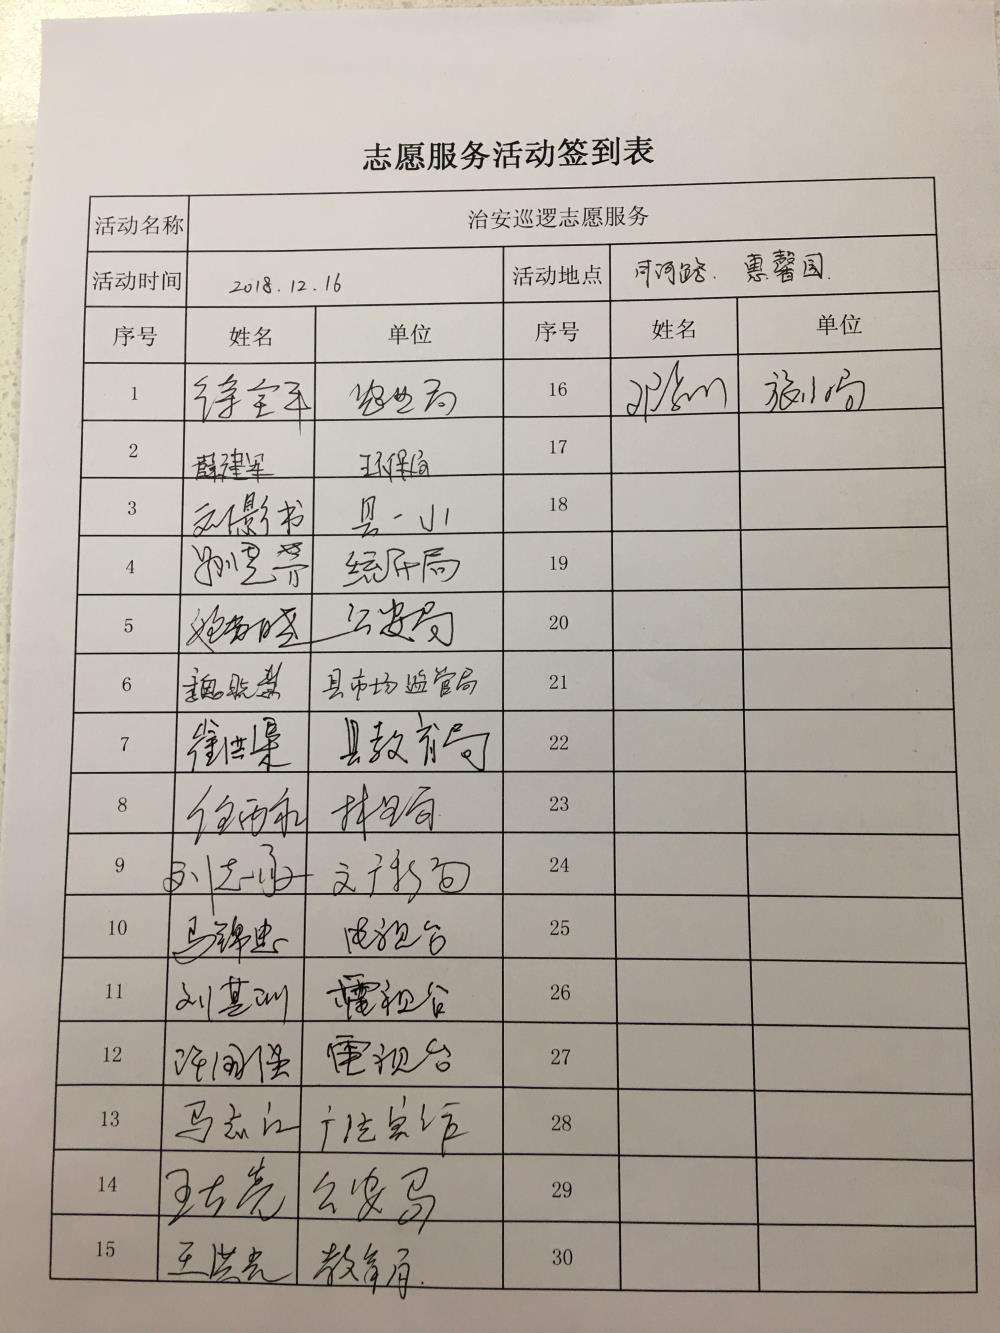 志愿服务活动签到表
活动名称 治安巡逻志愿服务
活动时间 2018.12.16 活动地点 惠馨园.
序号 姓名 单位 序号 姓名 单位
1 徐全军 局 16 旅游局
2 薛建军 环保局 17
3 刘影书 县一小 18
4 统计局 19
5 公安局 20
6 魏晓慧 县市场监管局 21
7 崔洪渠 县教育局 22
8 任西和 局 23
9 刘志 文广新局 24
10 马锦忠 电视台 25
11 刘其训 電视台 26
12 许国强 電视台 27
13 马志江 28
14 王士亮 公安局 29
15 王洪亮 教育局. 30